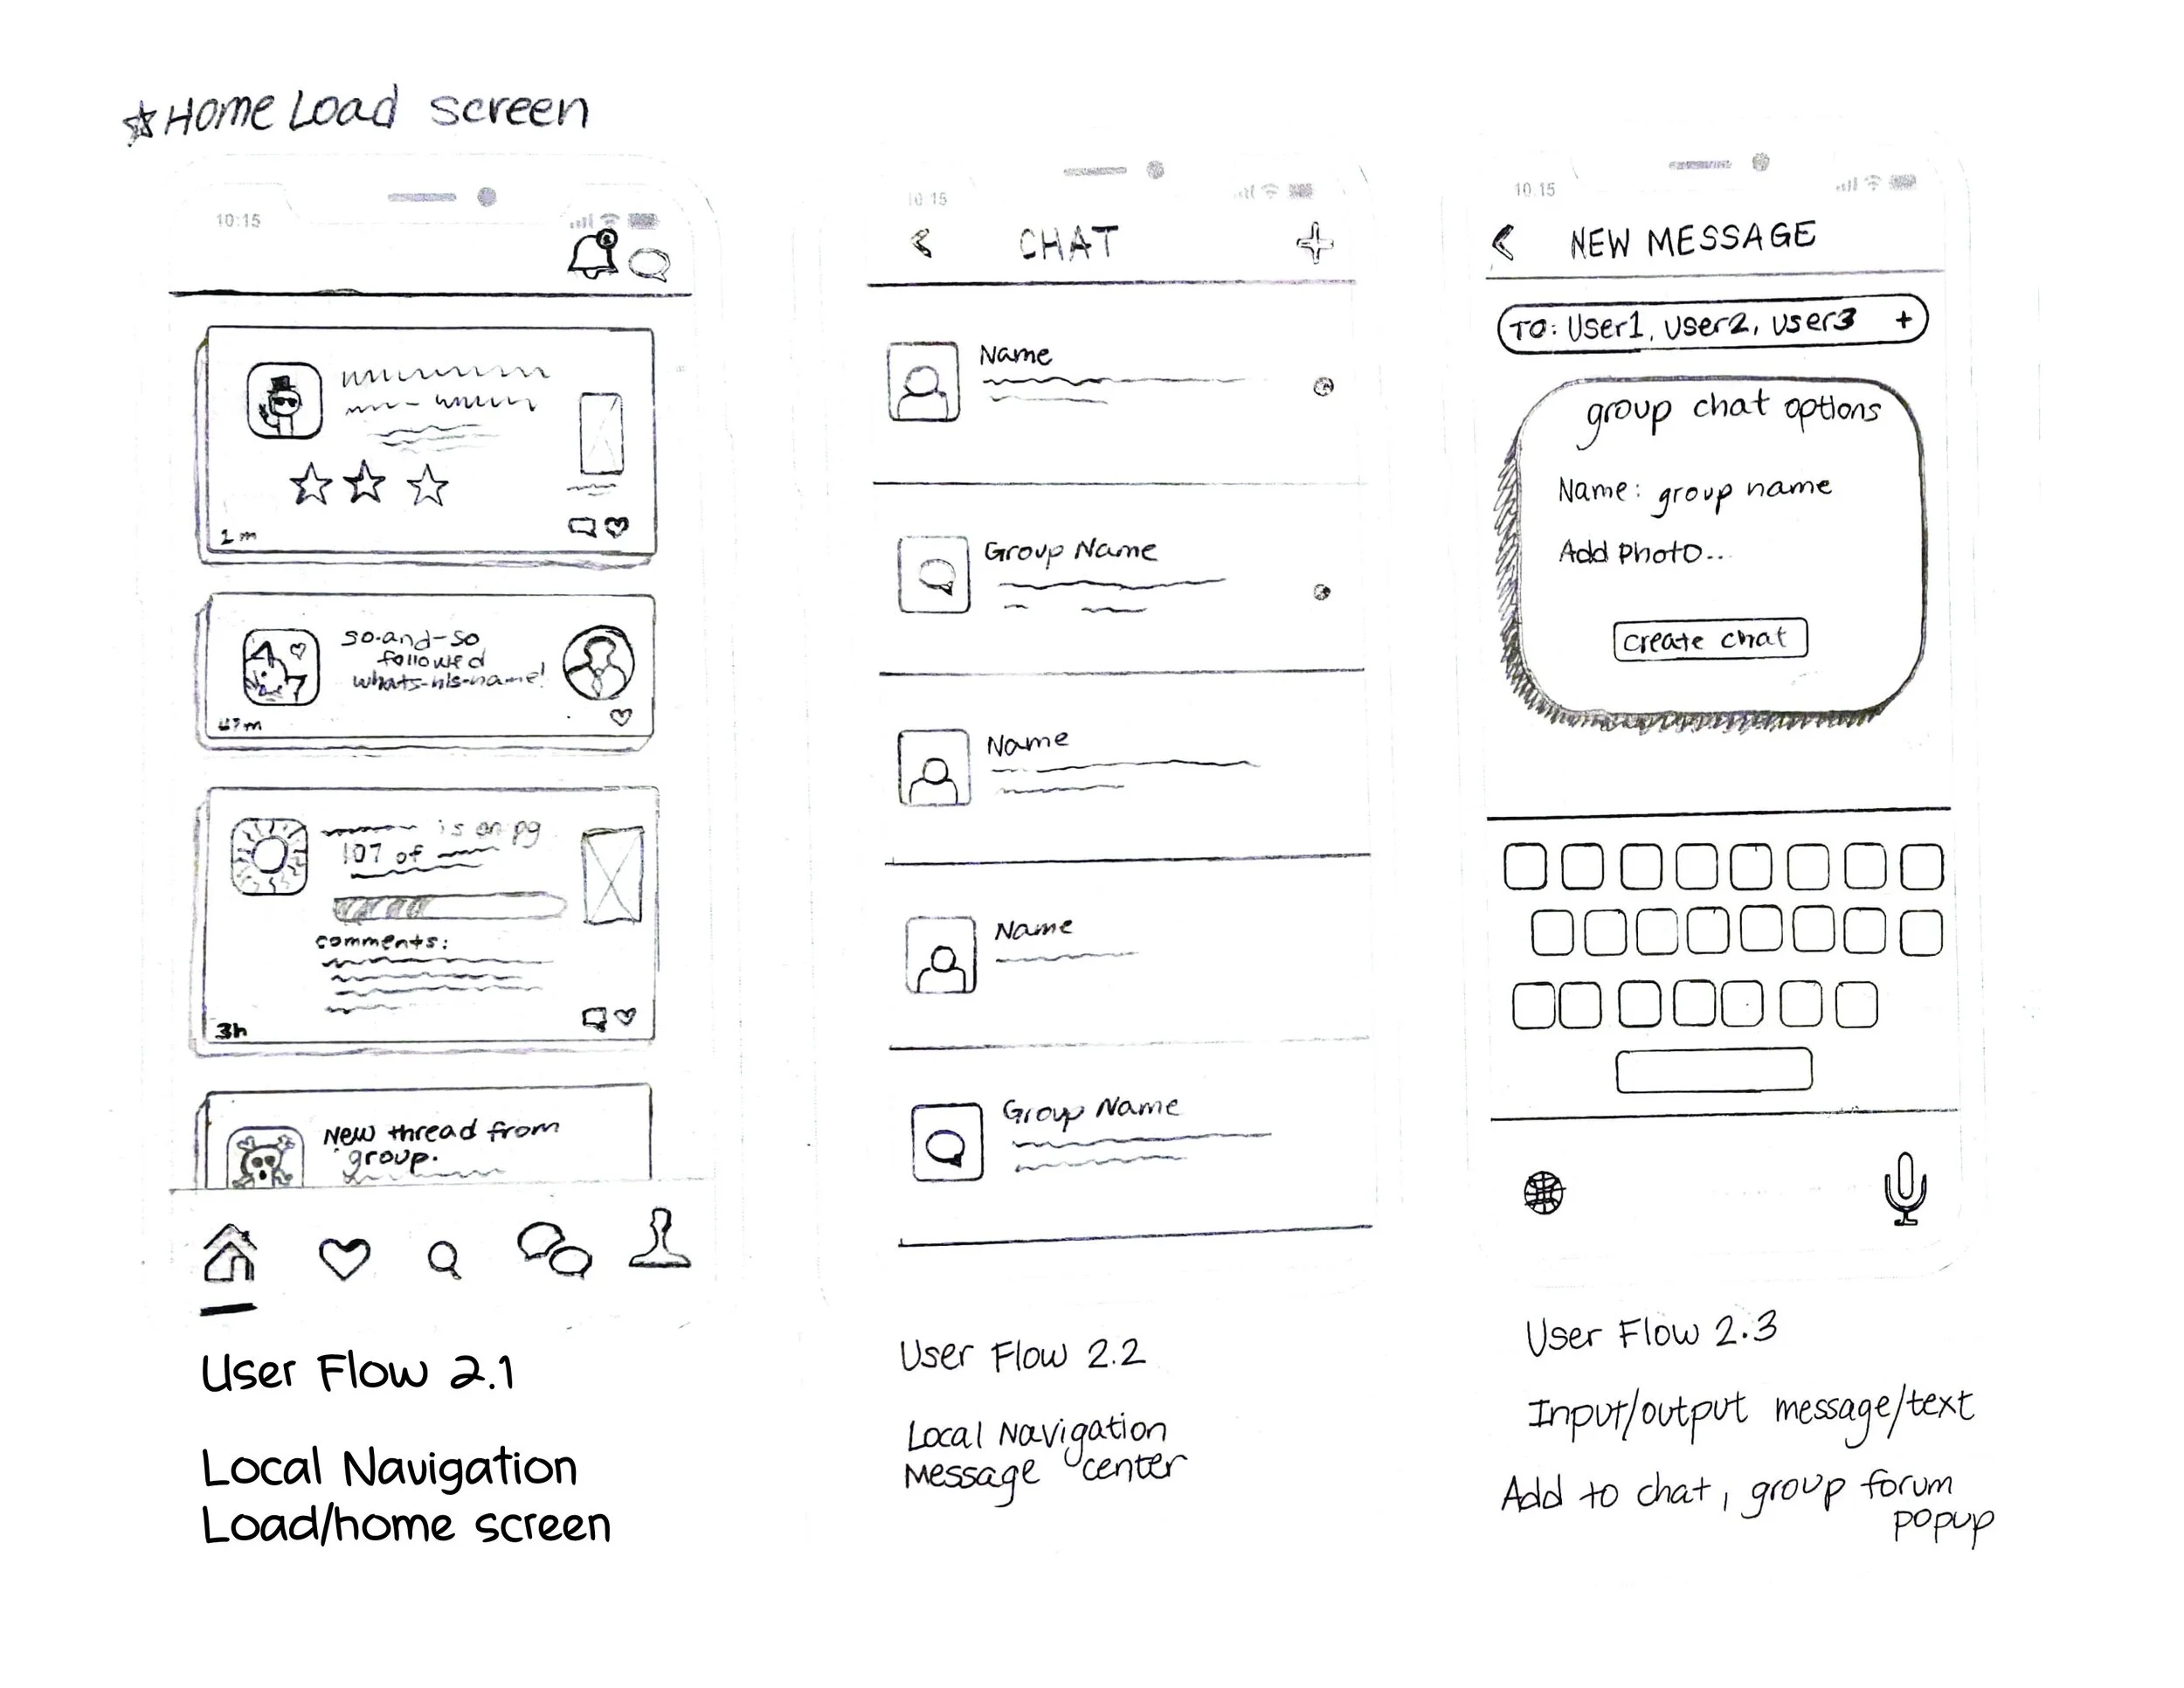 Home Load screen
10:15
1 m
so-and-so
followed
whats-his-name!
47m
is on pg
107 of
comments:
3h
New thread from
group.
User Flow 2.1
Local Navigation
Load/home screen
10 15
CHAT
Name
Group Name
Name
Name
Group Name
User Flow 2.2
Local Navigation
Message center
10.15
NEW MESSAGE
TO: User1, User2, User3 +
group chat options
Name: group name
Add photo...
create chat
User Flow 2.3
Input/output message/text
Add to chat, group forum
popup